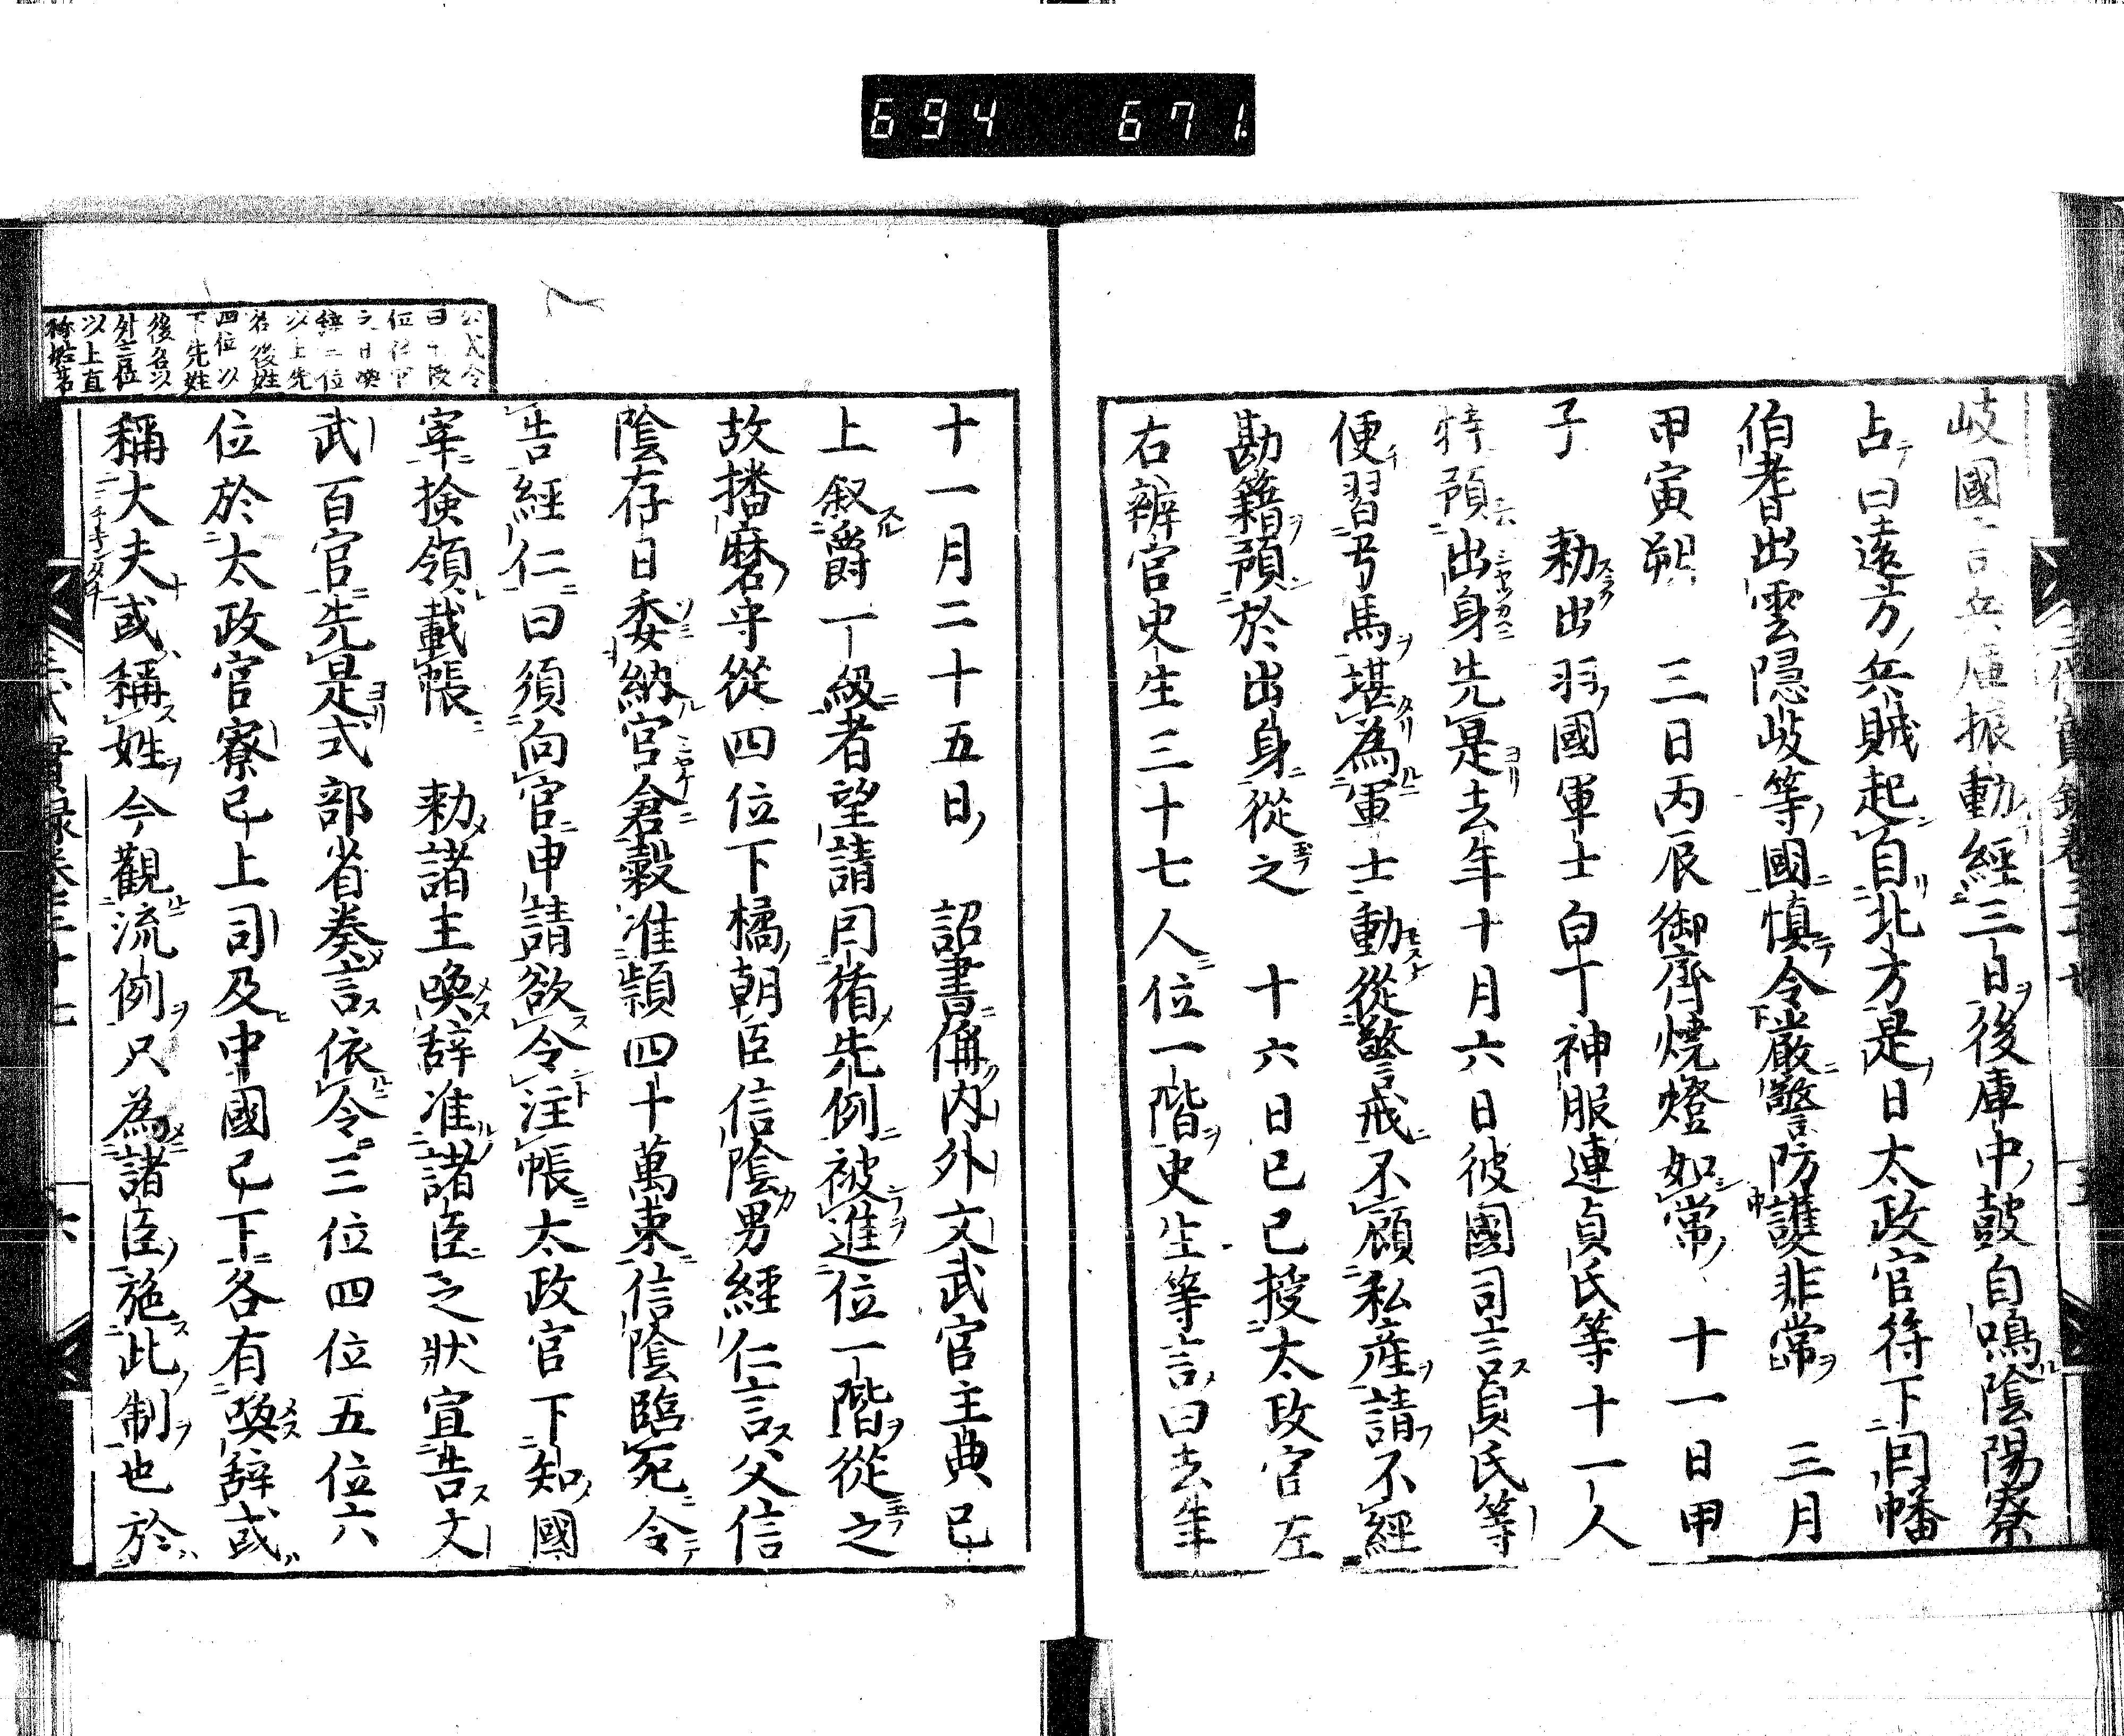 694 671
岐國言兵庫振動經三日後庫中鼓自鳴陰陽寮
占曰遠方兵賊起自北方是日太政官符下因幡
伯耆出雲隱岐等國慎令嚴警防護非常 三月
甲寅朔 三日丙辰御齊燒燈如常 十一日甲
子 勅出羽國軍士白丁神服連貞氏等十一人
特預出身先是去年十月六日彼國司言貞氏等
便習弓馬堪為軍士動從警戒不顧私產請不經
勘籍預於出身從之 十六日己巳授太政官左
右辨官史生三十七人位一階史生等言曰去年
十一月二十五日 詔書偁內外文武官主典已
上叙爵一級者望請因循先例被進位一階從之
故播磨守從四位下橘朝臣信陰男經仁言父信
陰存日委納官倉穀准頴四十萬束信陰臨死令
告經仁曰須向官申請欲令注帳太政官下知國
宰撿領載帳 勅諸王喚辞准諸臣之狀宣告文
武百官先是式部省奏言依令三位四位五位六
位於太政官寮已上司及中國已下各有喚辞或
稱大夫或稱姓今觀流例只為諸臣施此制也於
公式令
曰十授
位任官
之日喚
辞三位
以上先
名後姓
四位以
下先姓
後名以
外三位
以上直
稱姓若
三代實錄卷三十七
六